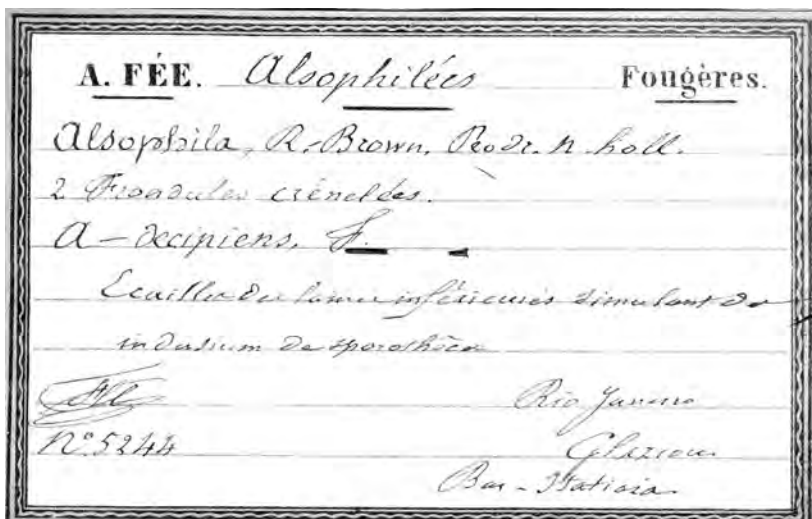 A. FÉE. Alsophilées Fougères.
Alsophila, R. Brown. Prodr. n. holl.
2 Frondules crénelées.
A - decipiens, F.
Ecailles des lames inférieures simulant
indusium de sporothèce
Fée Rio Janeiro
N°. 5244 Glaziou